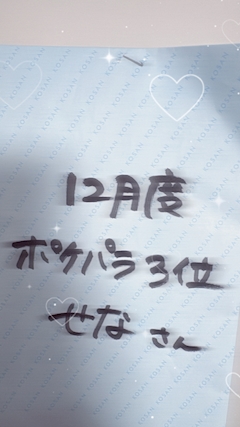 12月度
ポケパラ3位
せなさん